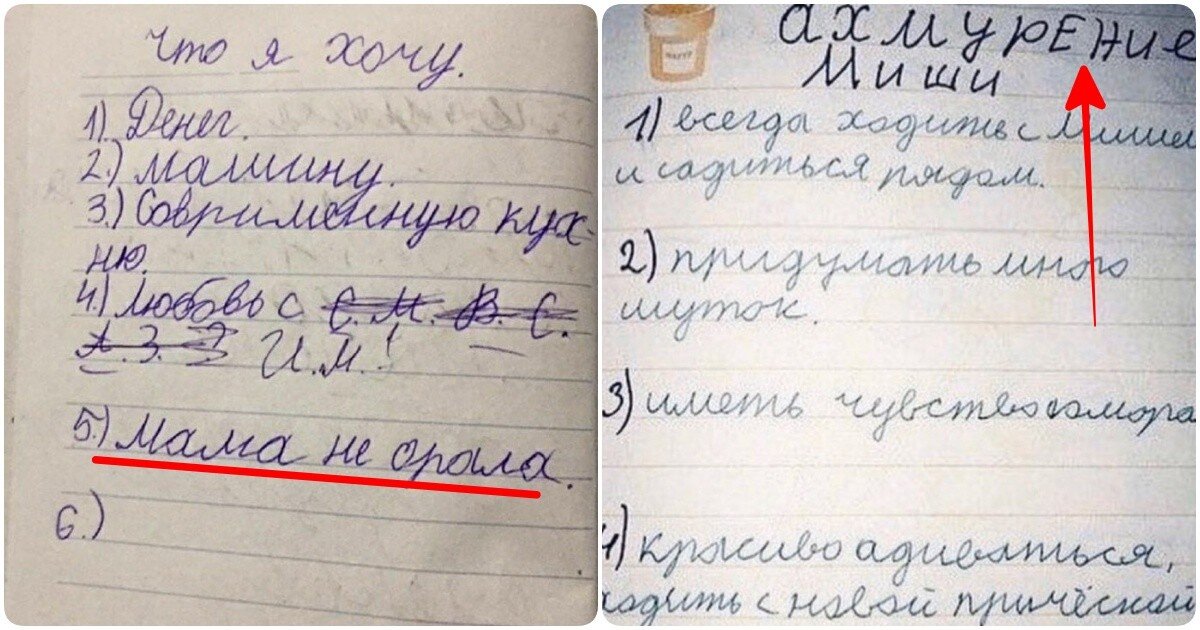 Что я хочу.
1). Денег.
2.) машину.
3.) Соврименную кух-
ню.
4.) любовь с С. М. В. С.
А. З. И.М.!
5.) Мама не орала.
6.)
ахмурЕние
Миши
1) всегда ходить с Мишей
и садиться рядом.
2) придумать много
шуток.
3) иметь чувство юмора
4) красиво адиваться,
ходить с новой причёской